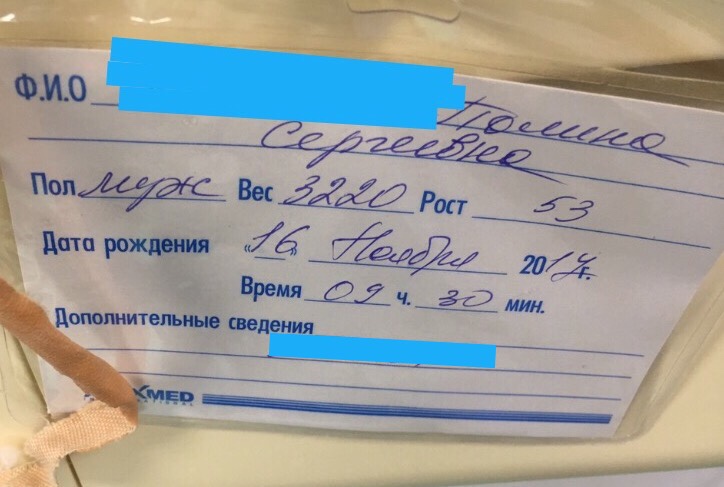 Ф.И.О Полина
Сергеевна
Пол муж Вес 3220 Рост 53
Дата рождения «16» Ноября 2017г.
Время 09 ч. 30 мин.
Дополнительные сведения
MED